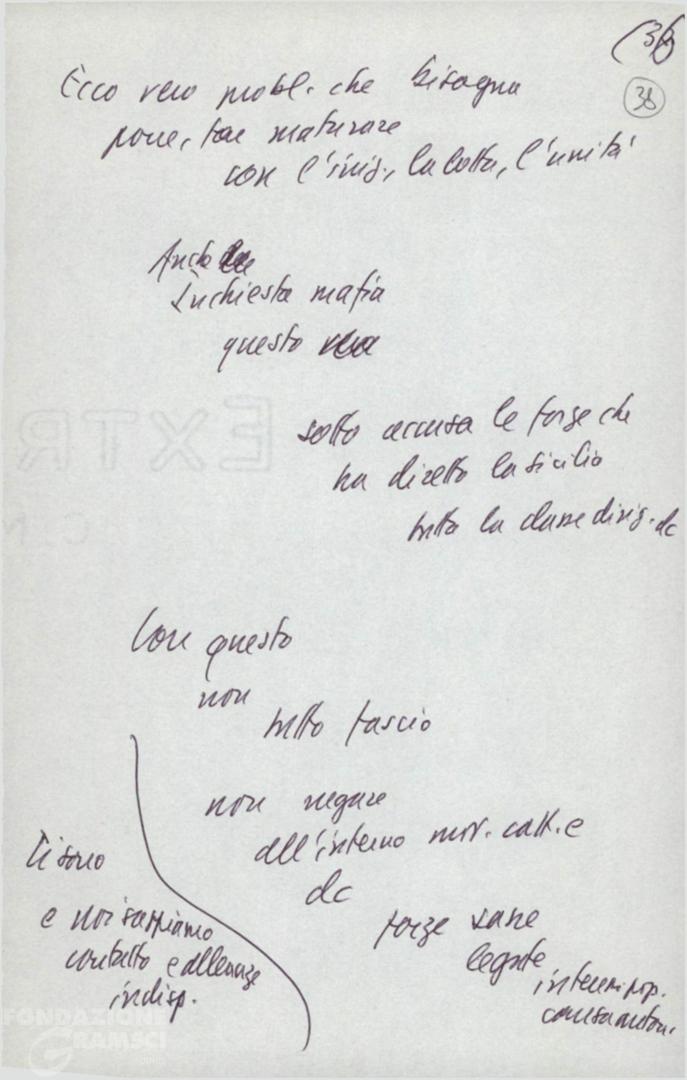 (38)
38
Ecco vero probl. che bisogna
porre, far maturare
con l'iniz., la lotta, l'unità
Anche
Inchiesta mafia
questo
sotto accusa le forze che
ha diretto la Sicilia
tutta la classe dirig. dc
Con questo
non
tutto fascio
non negare
all'interno mov. catt. e
dc
forze sane
legate
interessi pop.
causa auton.
Ci sono
e noi sappiamo
contatto e alleanze
indisp.
EXTR
FONDAZIONE
GRAMSCI